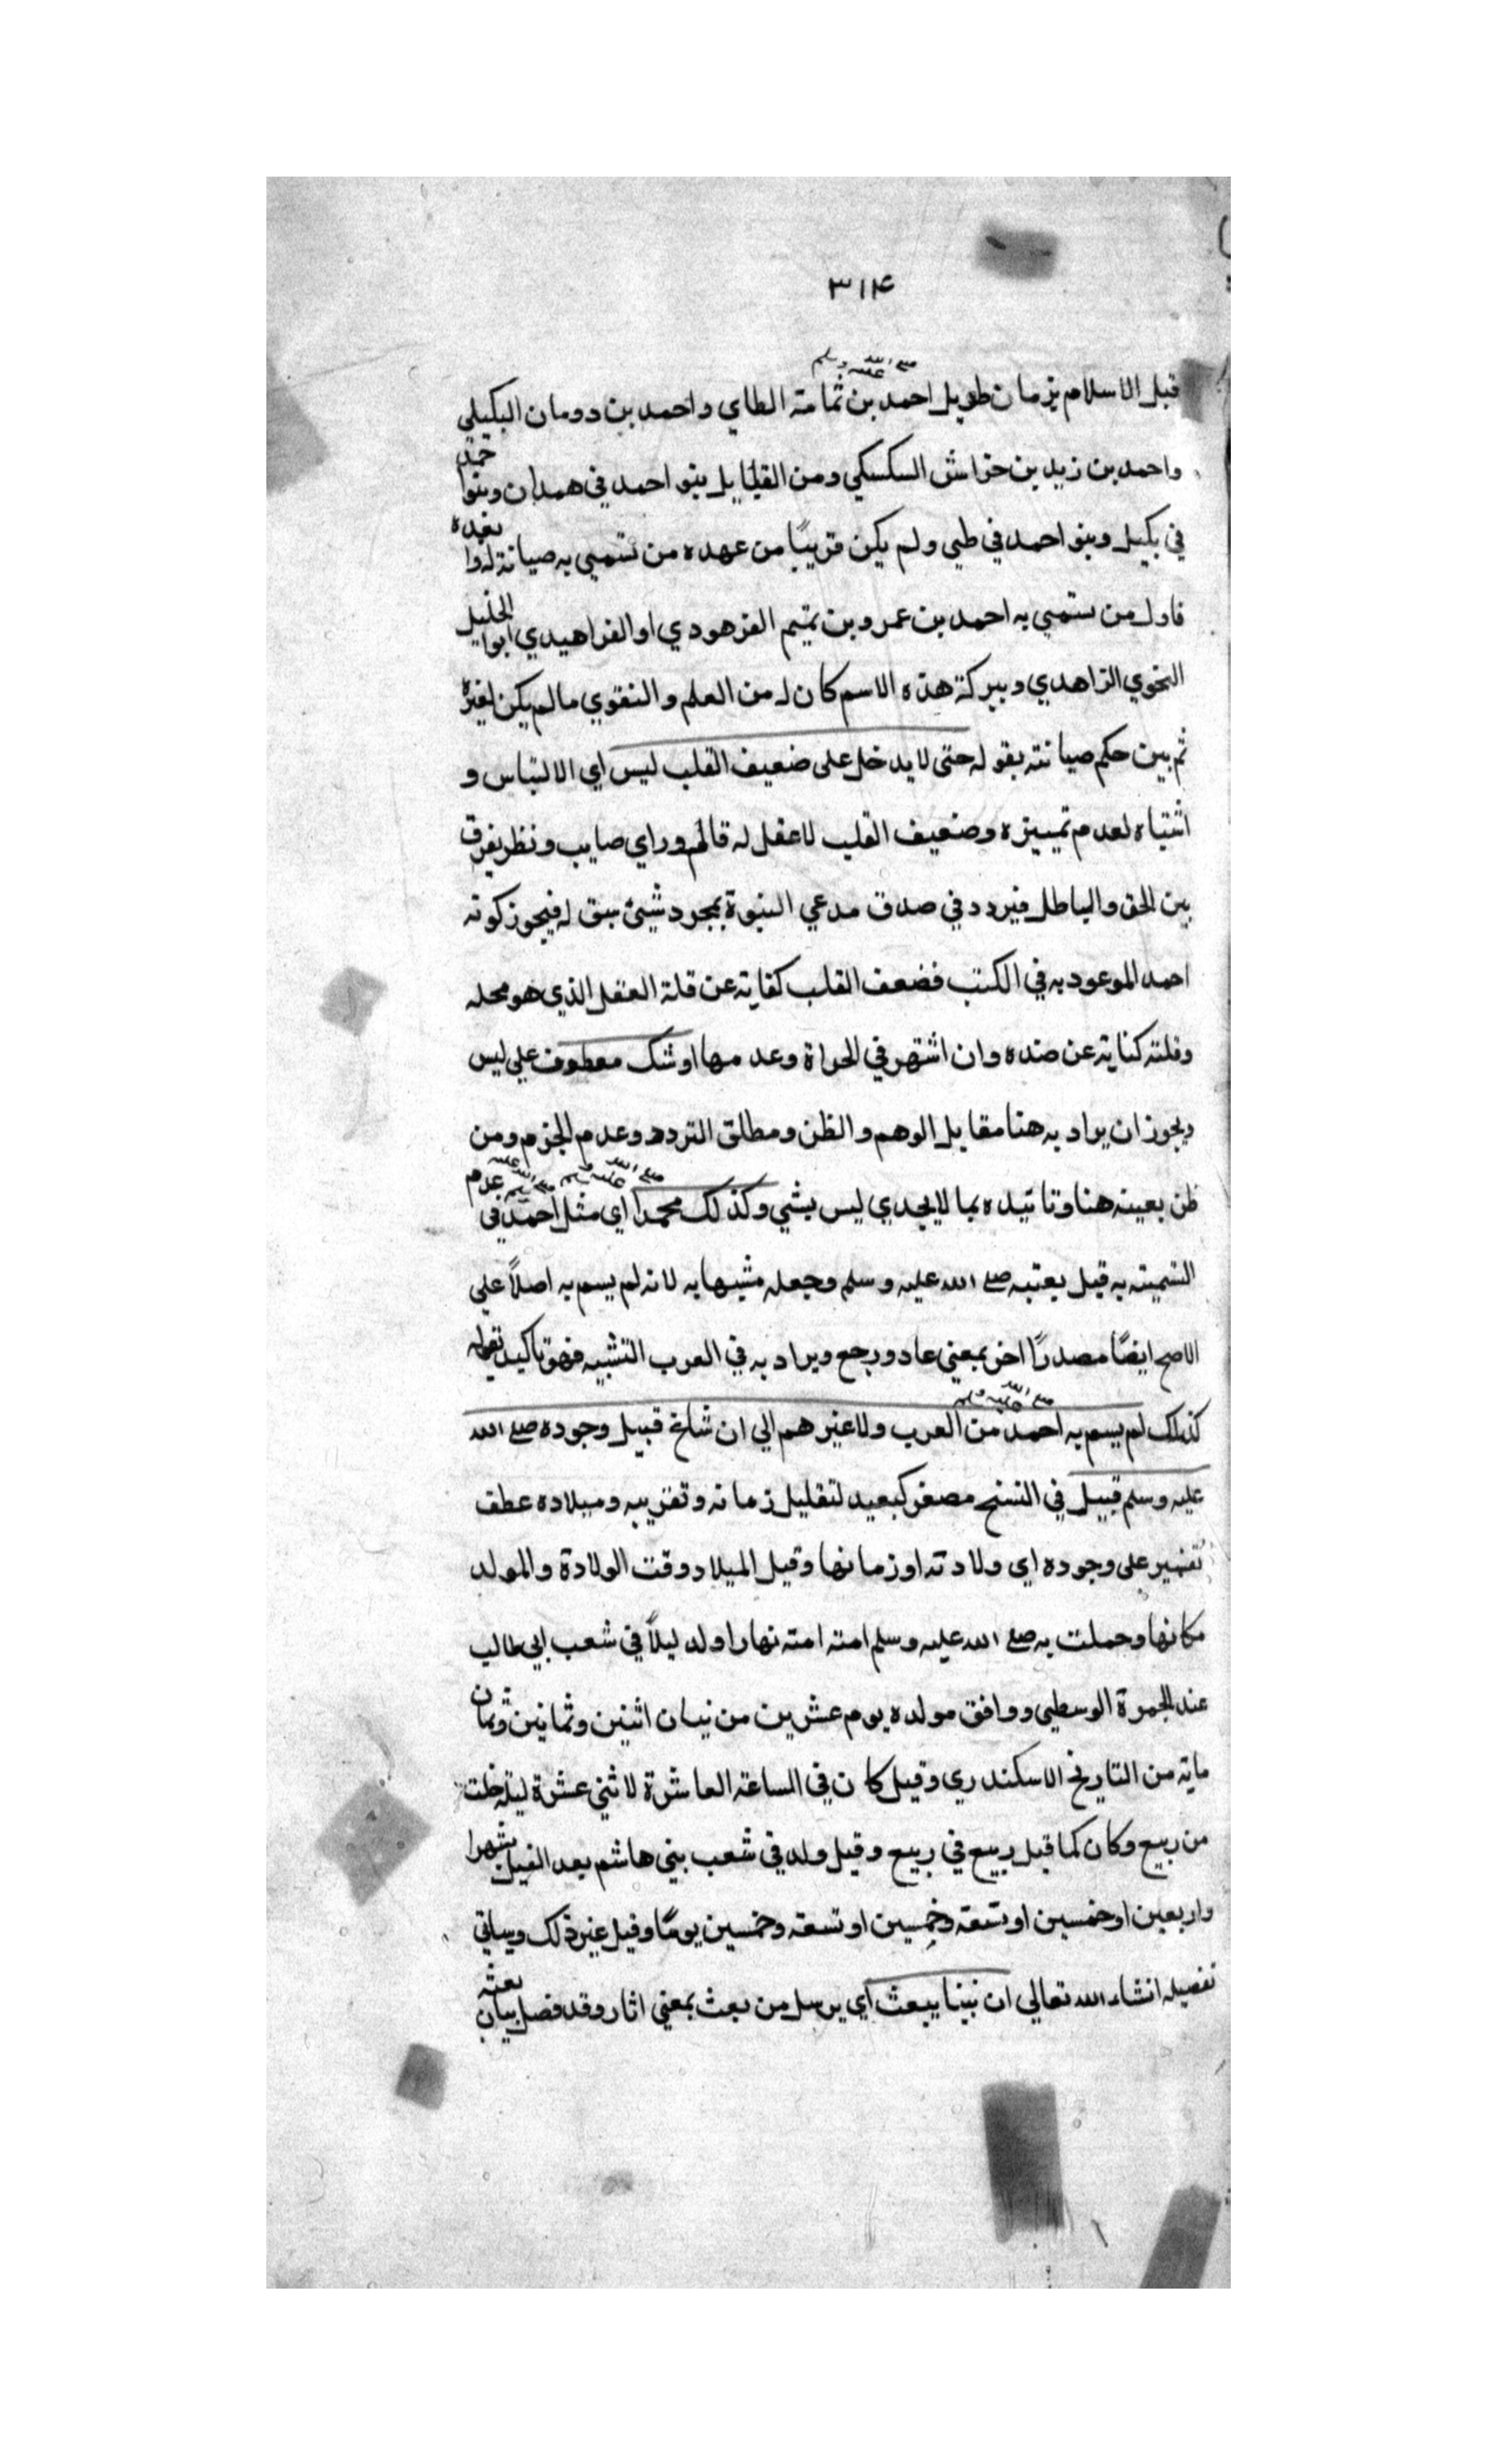 ٣١٤
قبل الاسلام بزمان طويل احمد بن ثمامة الطاي واحمد بن دومان البكيلي
واحمد بن زيد بن خراش السكسكي ومن القبايل بنو احمد في همدان وبنوا احمد
في بكيل وبنو احمد في طي ولم يكن قريبًا من عهده من تسمي به صيانة له واول بعده
فاول من تسمي به احمد بن عمرو بن تميم الفرهودي او الفراهيدي ابوا الخليل
النحوي الزاهدي وببركة هذه الاسم كان له من العلم والتقوي مالم يكن لغيره
ثم بين حكم صيانته بقوله حتى لا يدخل على ضعيف القلب لبس اي الالتباس و
اشتباه لعدم تمييزه وضعيف القلب لا عقل له قالم وراي صايب ونظر يفرق
بين الحق والباطل فيردد في صدق مدعي النبوة بمجرد شيئ سبق له فيجوز كونه
احمد الموعود به في الكتب فضعف القلب كناية عن قلة العقل الذي هو محله
وقلته كناية عن ضده وان اشتهر في الجراة وعدمها او شك معطوف علي لبس
ويجوز ان يراد به هنا مقابل الوهم والظن ومطلق التردد وعدم الجزم ومن
ظن بعينه هنا وتاتيده بما لا يجدي ليس بشي وكذلك محمدا اي مثل احمد في عدم
التسمية به قبل بعثته صلے الله عليه وسلم وجعله مشبها به لانه لم يسم به اصلاً علي
الاصح ايضًا مصدرًا اخر بمعني عاد ورجع ويراد به في العرب التشبيه فهو تاكيد لقوله
كذلك لم يسم به احمد من العرب ولا غيرهم الي ان شاع قبيل وجوده صلے الله
عليه وسلم قبيل في النسخ مصغر كبعيد لتقليل زمانه وتقريبه وميلاده عطف
تفسير على وجوده اي ولادته او زمانها وقيل الميلاد وقت الولادة والمولد
مكانها وحملت به صلے الله عليه وسلم امته امنه نهارا ولد ليلاً في شعب ابي طالب
عند الجمرة الوسطي ووافق مولده يوم عشرين من نيسان اثنين وثمانين وثمان
ماية من التاريخ الاسكندري وقيل كان في الساعة العاشرة لاثني عشرة ليلة خلت
من ربيع وكان كما قيل ربيع في ربيع وقيل ولد في شعب بني هاشم بعد الفيل بشهر
واربعين او خمسين او تسعة وخمسين او تسعة وخمسين يومًا وقيل غير ذلك وسياتي
تفصيله انشاء الله تعالي ان نبينا يبعث اي يرسل من بعث بمعني اثار وقد فصل بيان بعثه